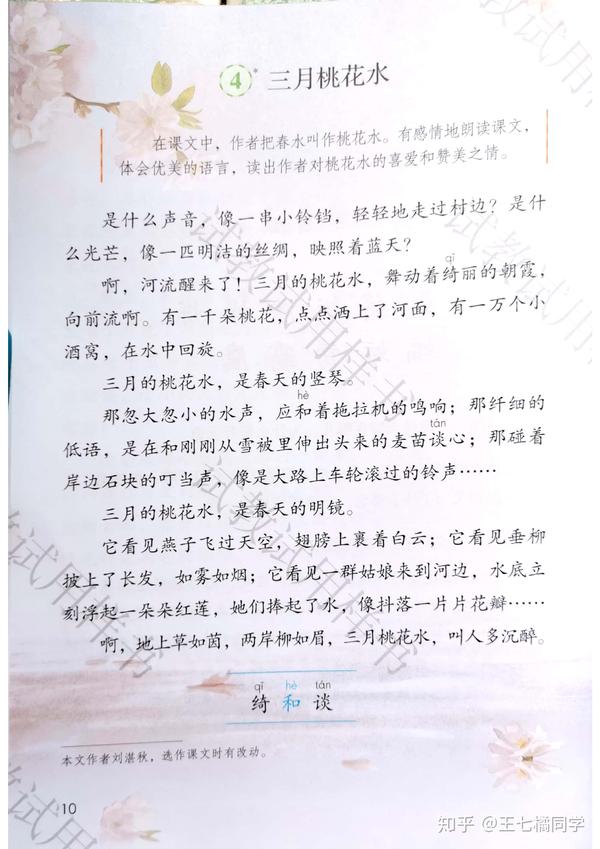 4* 三月桃花水
在课文中，作者把春水叫作桃花水。有感情地朗读课文，
体会优美的语言，读出作者对桃花水的喜爱和赞美之情。
是什么声音，像一串小铃铛，轻轻地走过村边？是什
么光芒，像一匹明洁的丝绸，映照着蓝天？
qǐ
啊，河流醒来了！三月的桃花水，舞动着绮丽的朝霞，
向前流啊。有一千朵桃花，点点洒上了河面，有一万个小
酒窝，在水中回旋。
三月的桃花水，是春天的竖琴。
hè
那忽大忽小的水声，应和着拖拉机的鸣响；那纤细的
tán
低语，是在和刚刚从雪被里伸出头来的麦苗谈心；那碰着
岸边石块的叮当声，像是大路上车轮滚过的铃声……
三月的桃花水，是春天的明镜。
它看见燕子飞过天空，翅膀上裹着白云；它看见垂柳
披上了长发，如雾如烟；它看见一群姑娘来到河边，水底立
刻浮起一朵朵红莲，她们捧起了水，像抖落一片片花瓣……
啊，地上草如茵，两岸柳如眉，三月桃花水，叫人多沉醉。
qǐ hè tán
绮 和 谈
本文作者刘湛秋，选作课文时有改动。
10
知乎 @王七橘同学
试教试用样书
试教试用样书
试教试用样书
试教试用样书
试教试用